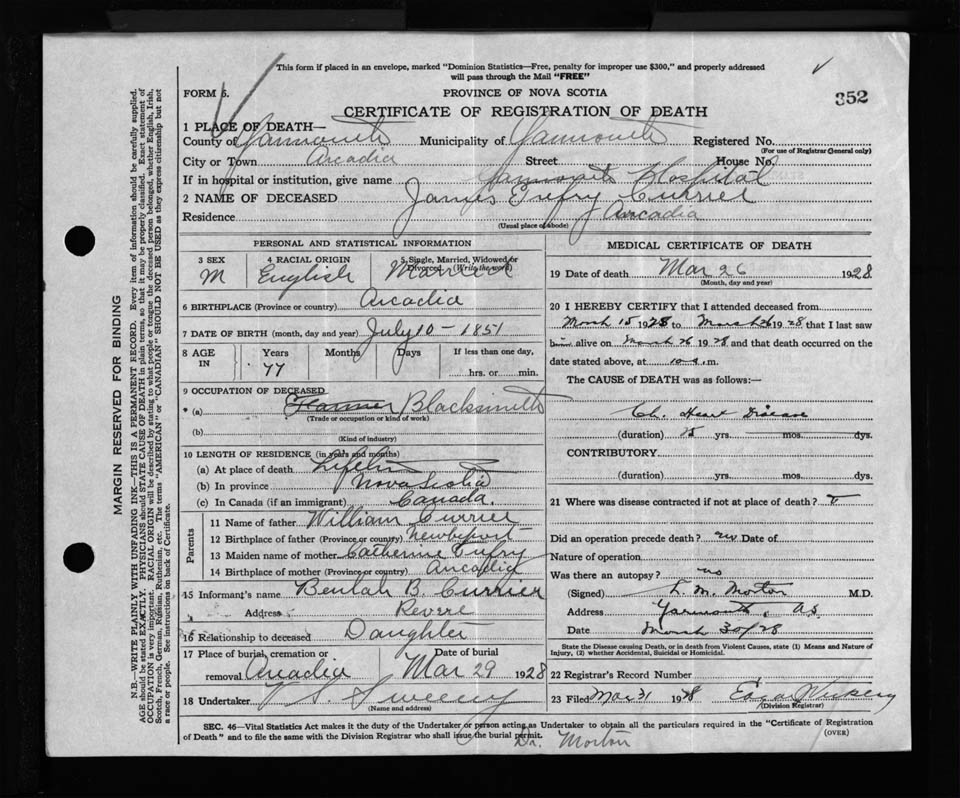 This form if placed in an envelope, marked "Dominion Statistics—Free, penalty for improper use $300," and properly addressed
will pass through the Mail "FREE"
FORM 5.
PROVINCE OF NOVA SCOTIA
352
CERTIFICATE OF REGISTRATION OF DEATH
1 PLACE OF DEATH—
County of Yarmouth Municipality of Yarmouth Registered No.
(For use of Registrar General only)
City or Town Arcadia Street House No.
If in hospital or institution, give name Yarmouth Hospital
2 NAME OF DECEASED James Tufry Currier
Residence Arcadia
(Usual place of abode)
PERSONAL AND STATISTICAL INFORMATION
3 SEX 4 RACIAL ORIGIN 5 Single, Married, Widowed or Divorced (Write the word)
M English Married
6 BIRTHPLACE (Province or country) Arcadia
7 DATE OF BIRTH (month, day and year) July 10 - 1851
8 AGE IN Years Months Days If less than one day,
77 hrs. or min.
9 OCCUPATION OF DECEASED
(a) Farmer Blacksmith
(Trade or occupation or kind of work)
(b)
(Kind of industry)
10 LENGTH OF RESIDENCE (in years and months)
(a) At place of death Lifetim
(b) In province Nova Scotia
(c) In Canada (if an immigrant) Canada.
Parents
11 Name of father William Currier
12 Birthplace of father (Province or country) Newbyport
13 Maiden name of mother Catherine Tufry
14 Birthplace of mother (Province or country) Arcadia
15 Informant's name Beulah B. Currier
Address Revere
16 Relationship to deceased Daughter
17 Place of burial, cremation or removal Arcadia Date of burial Mar 29 1928
18 Undertaker V. S. Sweeny
(Name and address)
MEDICAL CERTIFICATE OF DEATH
19 Date of death Mar 26 1928
(Month, day and year)
20 I HEREBY CERTIFY that I attended deceased from
March 15 1928 to March 26 1928 that I last saw
him alive on March 26 1928 and that death occurred on the
date stated above, at 10 a.m.
The CAUSE OF DEATH was as follows:—
Ch. Heart Disease
(duration) 15 yrs. mos. dys.
CONTRIBUTORY
(duration) yrs. mos. dys.
21 Where was disease contracted if not at place of death?
Did an operation precede death? no Date of
Nature of operation
Was there an autopsy? no
(Signed) L. M. Morton M.D.
Address Yarmouth, N.S.
Date March 30/28
State the Disease causing Death, or in death from Violent Causes, state (1) Means and Nature of
Injury, (2) whether Accidental, Suicidal or Homicidal.
22 Registrar's Record Number
23 Filed Mar 31 1928
(Division Registrar)
SEC. 46—Vital Statistics Act makes it the duty of the Undertaker or person acting as Undertaker to obtain all the particulars required in the "Certificate of Registration
of Death" and to file the same with the Division Registrar who shall issue the burial permit.
(OVER)
Dr. Morton
MARGIN RESERVED FOR BINDING
N.B.—WRITE PLAINLY WITH UNFADING INK—THIS IS A PERMANENT RECORD. Every item of information should be carefully supplied.
AGE should be stated EXACTLY. PHYSICIANS should STATE CAUSE OF DEATH in plain terms, so that it may be properly classified. Exact statement of
OCCUPATION is very important. RACIAL ORIGIN will be described by stating to what people or tongue the deceased person belonged, whether English, Irish,
Scotch, French, German, Russian, Ruthenian, etc. The terms "AMERICAN" or "CANADIAN" SHOULD NOT BE USED as they express citizenship but not
a race or people. See instructions on back of Certificate.